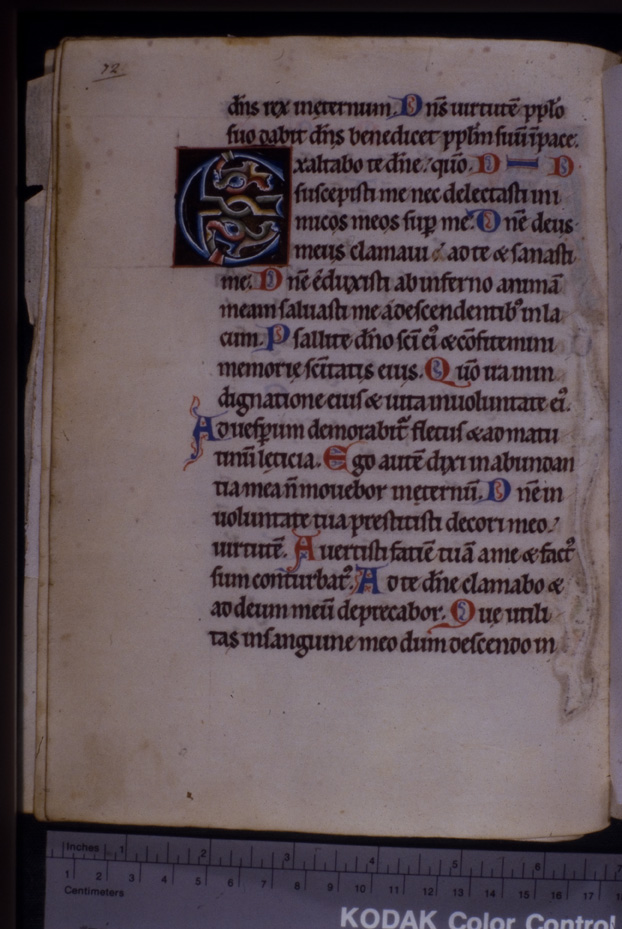 72
dñs rex ineternum. Dñs uirtutē pplo
suo dabit dñs benedicet pplm suū īpace.
Exaltabo te dñe: qūo. D D
suscepisti me nec delectasti ini
micos meos sup me. D nē deus
meus clamaui ad te & sanasti
me. D nē eduxisti ab inferno animā
meam saluasti me a descendentib; inla
cum. P sallite dño scī ei; & cōfitemini
memorię scītatis eius. Q uō ira inin
dignatione eius & uita inuoluntate ei;.
Ad uesperum demorabit fletus & ad matu
tinū lęticia. E go autē dixi inabundan
tia mea ñ mouebor ineternū. D nē in
uoluntate tua prestitisti decori meo
uirtutē. A uertisti fatiē tuā a me & fact;
sum conturbat;. A d te dñe clamabo &
ad deum meū deprecabor. Q uę utili
tas insanguine meo dum descendo in
Inches 1 2 3 4 5 6 7
1 2 3 4 5 6 7 8 9 10 11 12 13 14 15 16 17
Centimeters
KODAK Color Control